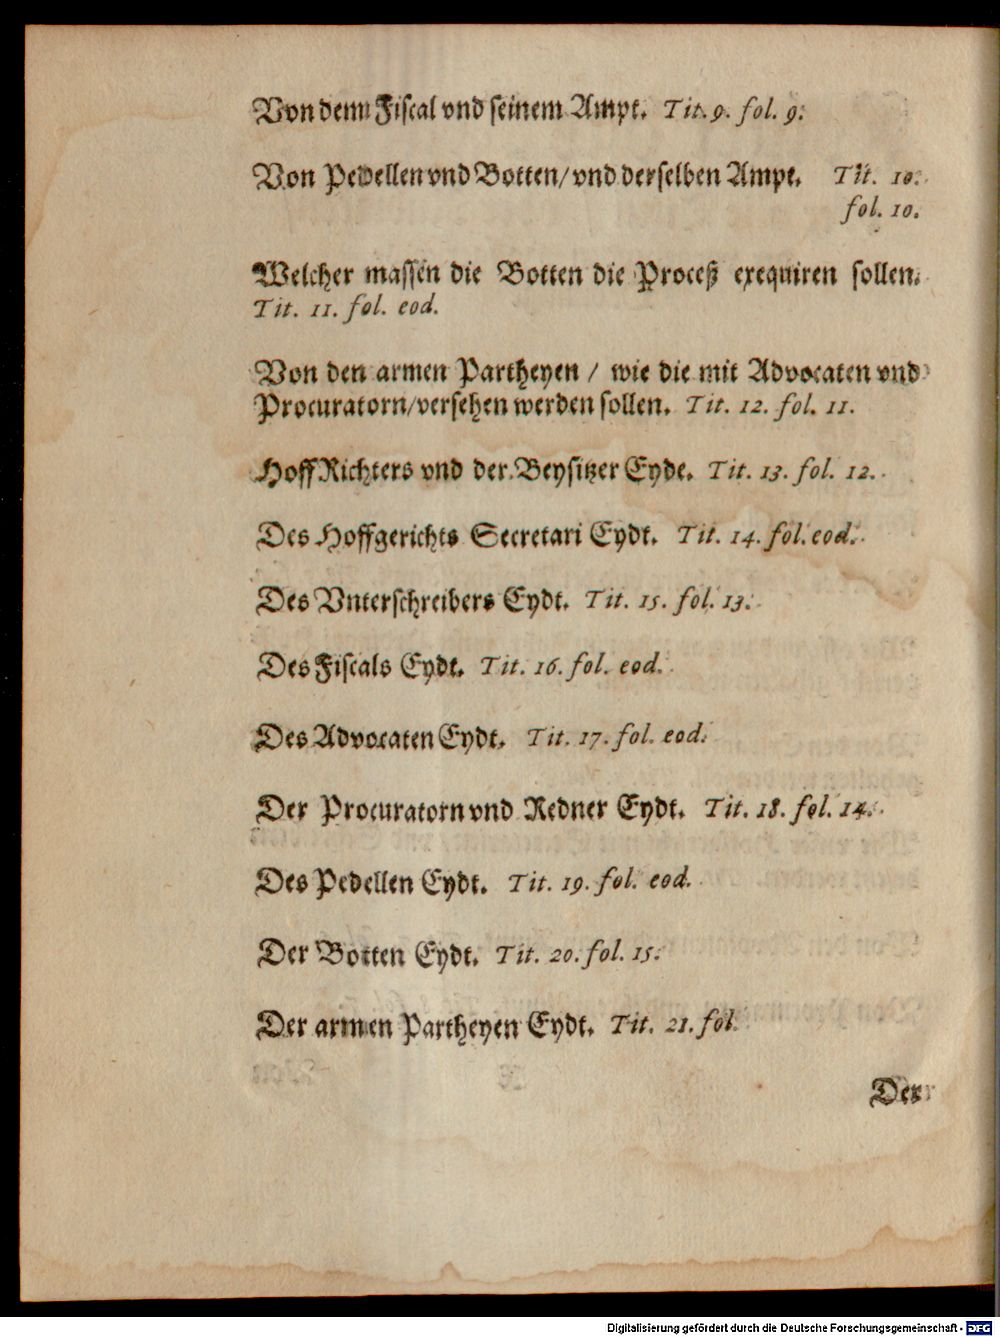 Von dem Fiscal vnd seinem Ampt. Tit. 9. fol. 9.
Von Pedellen vnd Botten/ vnd derselben Ampt. Tit. 10.
fol. 10.
Welcher massen die Botten die Proceß exequiren sollen.
Tit. 11. fol. eod.
Von den armen Partheyen / wie die mit Advocaten vnd
Procuratorn/ versehen werden sollen. Tit. 12. fol. 11.
HoffRichters vnd der Beysitzer Eyde. Tit. 13. fol. 12.
Des Hoffgerichts Secretari Eydt. Tit. 14. fol. eod.
Des Vnterschreibers Eydt. Tit. 15. fol. 13.
Des Fiscals Eydt. Tit. 16. fol. eod.
Des Advocaten Eydt. Tit. 17. fol. eod.
Der Procuratorn vnd Redner Eydt. Tit. 18. fol. 14.
Des Pedellen Eydt. Tit. 19. fol. eod.
Der Botten Eydt. Tit. 20. fol. 15.
Der armen Partheyen Eydt. Tit. 21. fol.
Der
Digitalisierung gefördert durch die Deutsche Forschungsgemeinschaft - DFG